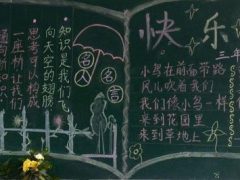 名人
名言
知识是我们飞
向天空的翅膀
思考可以构成
一座桥让我们
通向新知识
快乐
三年
小鸟在前面带路
风儿吹着我们
我们像小鸟一样
来到花园里
来到草地上